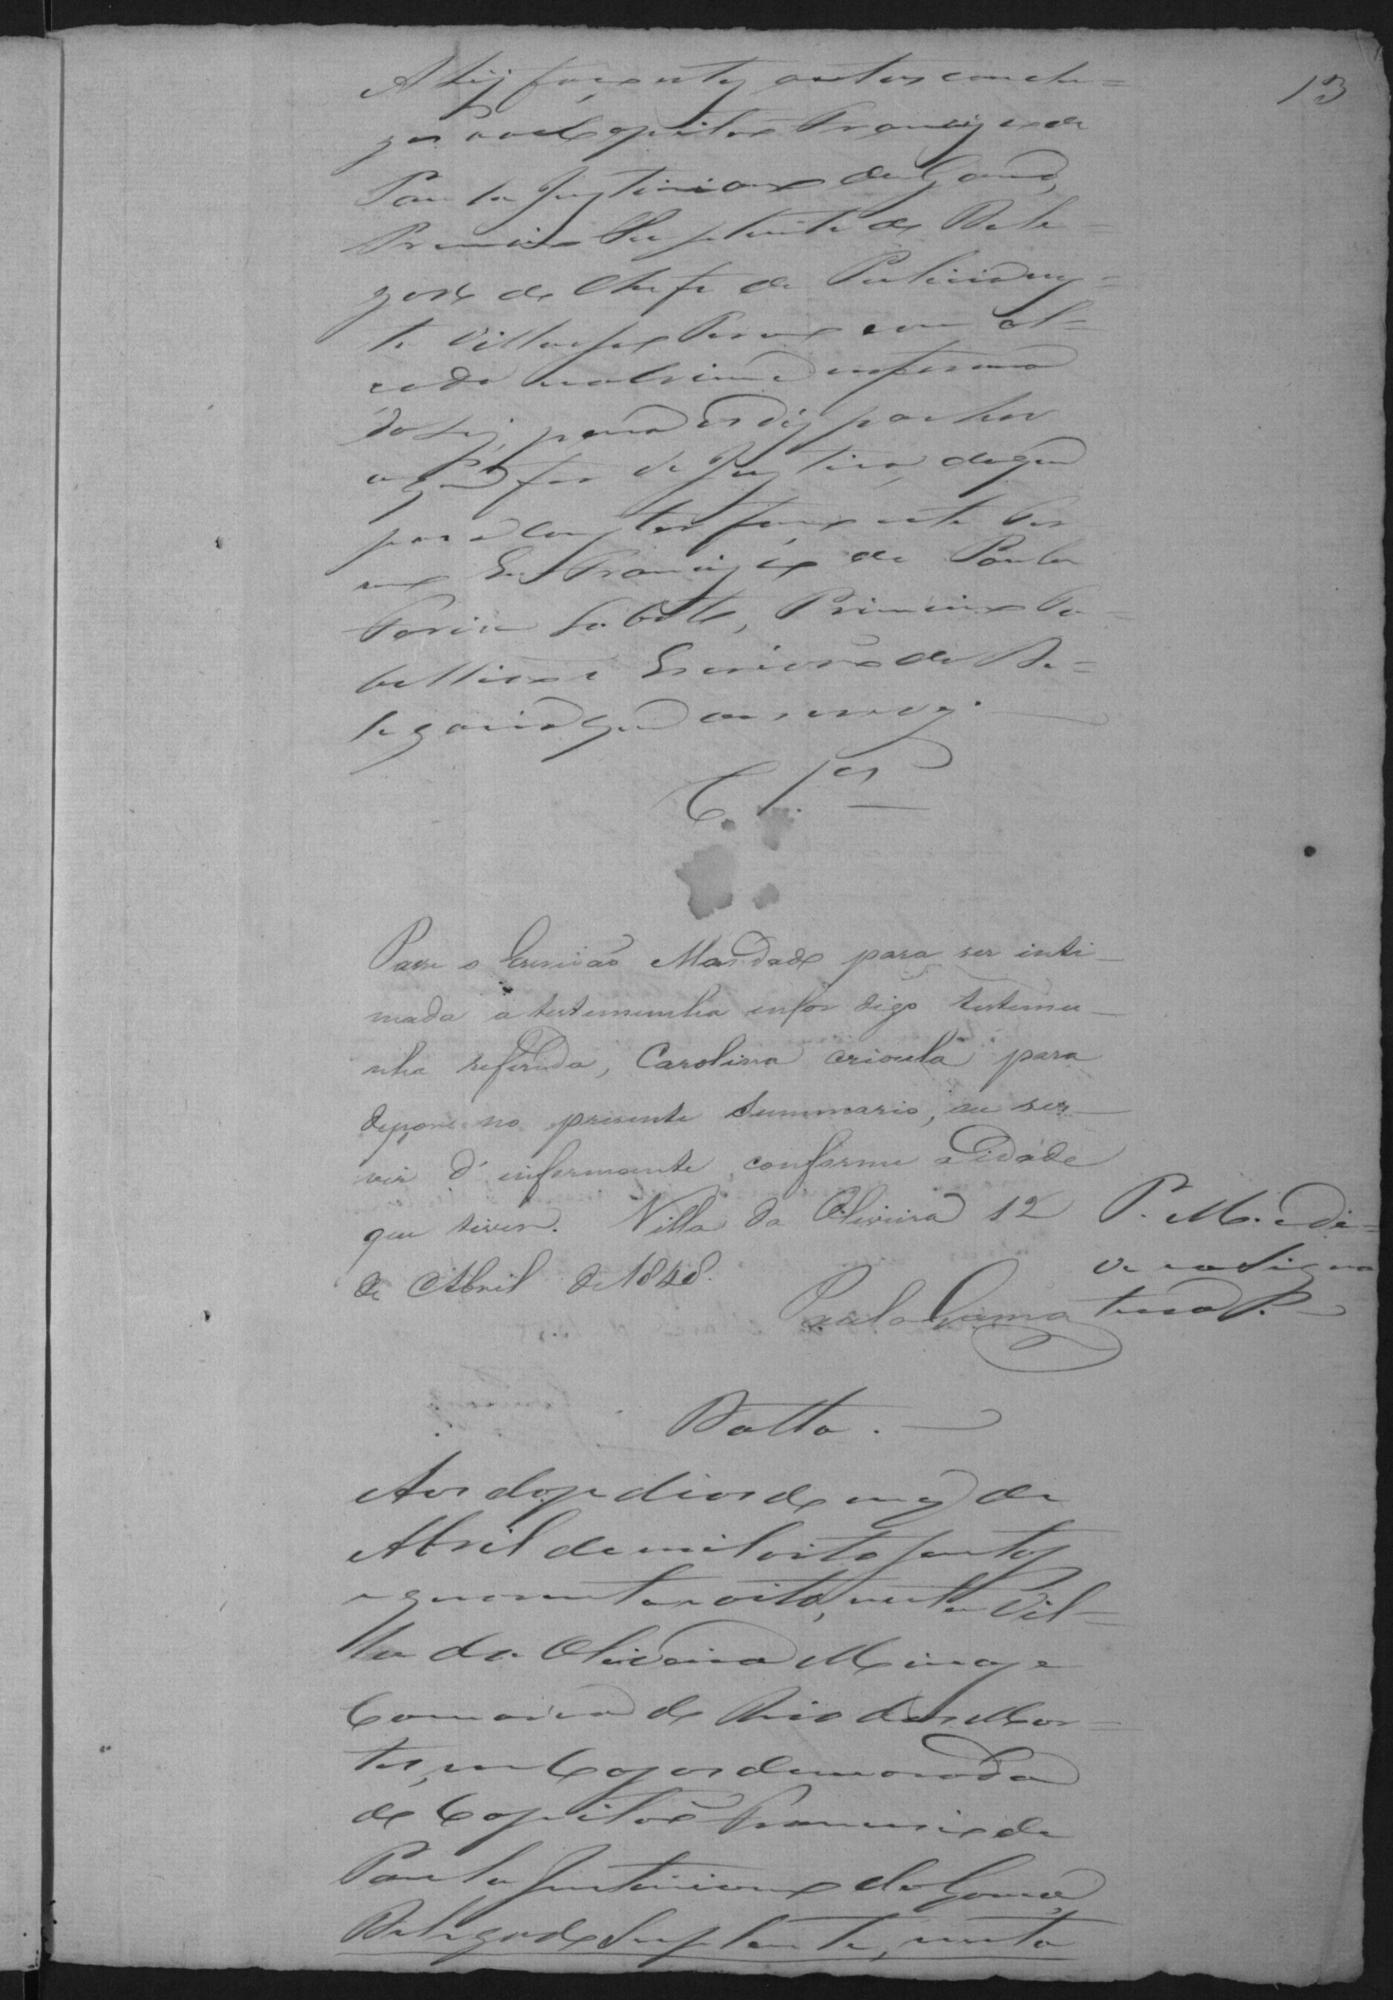 13
A seis faço estes autos conclu=
zos ao Capitão Francisco de
Paula Justiniano da Gama,
Primeiro Supplente do Dele=
gado do Chefe de Policia des=
te Villa e seo Termo com al=
para os dis por hor
de Justiça, do que
para constar faço este Ter
mo Eu Francisco de Paula
Faria Lobato, Primeiro Ta=
belliao e Escrivão da De=
legacia que o escrevy.
C.os
Passe o Escrivão Mandado para ser inti_
mada a testemunha enfor digo testemu_
nha referida, Carolina crioula para
depor no presente Summario, ou ser_
vir d'informante, conforme a Idade
que tiver. Villa da Oliveira 12
de Abril de 1848.
Paula Gama
P. M. e di=
ve assigna
tura P.
Datta.
Aos doze dias do mez de
Abril de mil oito centos
e quarenta e oito, nesta Vil=
lla da Oliveira Minas e
Comarca do Rio das Mor=
tes, em Cazas de morada
do Capitão Francisco de
Paula Justiniano da Gama,
Delegado Supplente, nesta